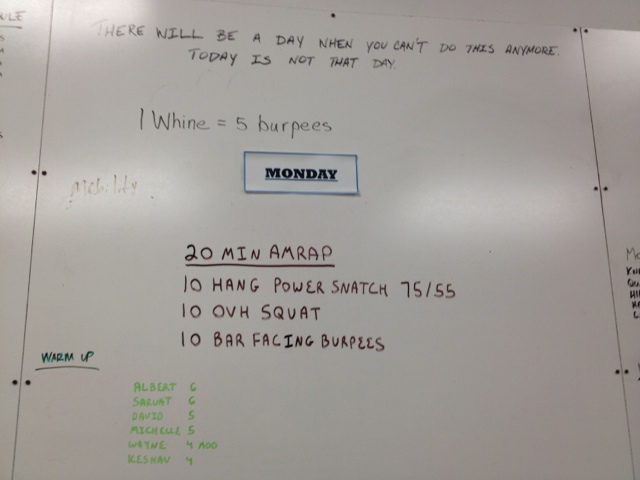 THERE WILL BE A DAY WHEN YOU CAN'T DO THIS ANYMORE.
TODAY IS NOT THAT DAY.
1 Whine = 5 burpees
MONDAY
Mobility
20 MIN AMRAP
10 HANG POWER SNATCH 75/55
10 OVH SQUAT
10 BAR FACING BURPEES
WARM UP
ALBERT 6
SARVAT 6
DAVID 5
MICHELLE 5
WAYNE 4 MOD
KESHAV 4